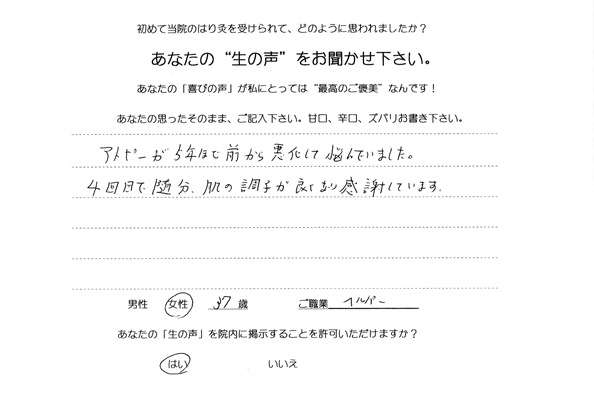 初めて当院のはり灸を受けられて、どのように思われましたか？
あなたの “生の声” をお聞かせ下さい。
あなたの「喜びの声」が私にとっては “最高のご褒美” なんです！
あなたの思ったそのまま、ご記入下さい。甘口、辛口、ズバリお書き下さい。
アトピーが5年ほど前から悪化して悩んでいました。
4回目で随分、肌の調子が良くなり感謝しています。
男性 女性 37 歳 ご職業
あなたの「生の声」を院内に掲示することを許可いただけますか？
はい いいえ